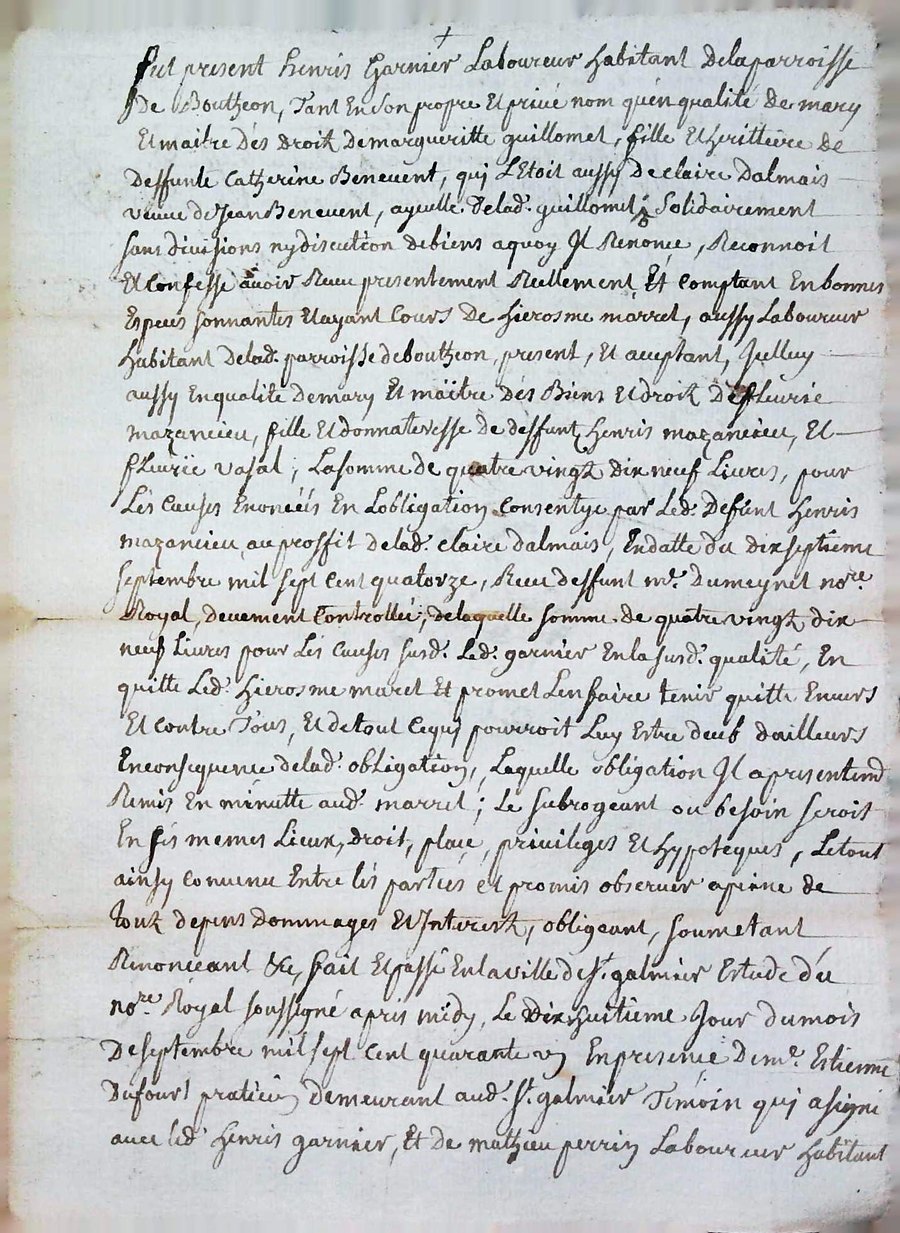 +
fut present henris Garnier Laboureur habitant delaparroisse
de Boutheon, Tant Enson propre Et privé nom quén qualité de mary
Et maitre dés droit demargueritte guillomet, fille Et herittiere de
deffunte Catherine Benevent, quj L'Etoit aussy de claire dalmais
veuve de Jean Benevent, ayeulle delad. guillomet; Solidairement
sans divisions ny discution debiens aquoy Jl Renonce, Reconnoit
Et Confesse avoir Receu presentement Reellement Et comptant En bonnes
Especes sonnantes Et ayant Cours de hierosme marret, aussy Laboureur
habitant delad. parroisse deboutheon, present, Et aceptant, Jcelluy
aussy En qualité demary Et maïtre dés Biens Et droit de fleurie
mazancieu, fille Et donnateresse de deffunt henris mazancieu, Et
fleurïe vasal; Lasomme de quatre vingt dix neuf Livres, pour
Lés Causes Enoncéés En Lobligation Consentye par Led. Defunt henris
mazancieu, au proffit delad. claire dalmais, En datte du dix septieme
septembre mil sept cent quatorze, Receu deffunt me. Dumeynet nore.
Royal, deuement Controllée; delaquelle somme de quatre vingt dix
neuf Livres pour Lés Causes susd. Led. garnier En la susd. qualité, En
quitte Led. hierosme maret Et promet Len faire tenir quitte Envers
Et contre Tous, Et detout Cequj pourroit Luy Estre deub d'ailleurs
En consequence delad. obligation, Laquelle obligation Jl apresentemt
Remis En minutte aud. marret; Le subrogeant ou besoin seroit
En sés memes Lieux, droit, place, privileges Et hypoteques, Letout
ainsy convenu Entre lés partiés et promis observer apeine de
tout depens dommages Et Jnterest, obligeant, soumetant
Renonceant &c, fait Et passé En la ville de St. galmier Estude du
nore. Royal soussigné apres midy, Le dix huitieme Jour dumois
de septembre mil sept Cent quarante un En presence de me. Estienne
Dufour praticien demeurant aud. St. galmier Témoin quj a signé
avec led. henris garnier, Et de mathieu perrin Laboureur habitant